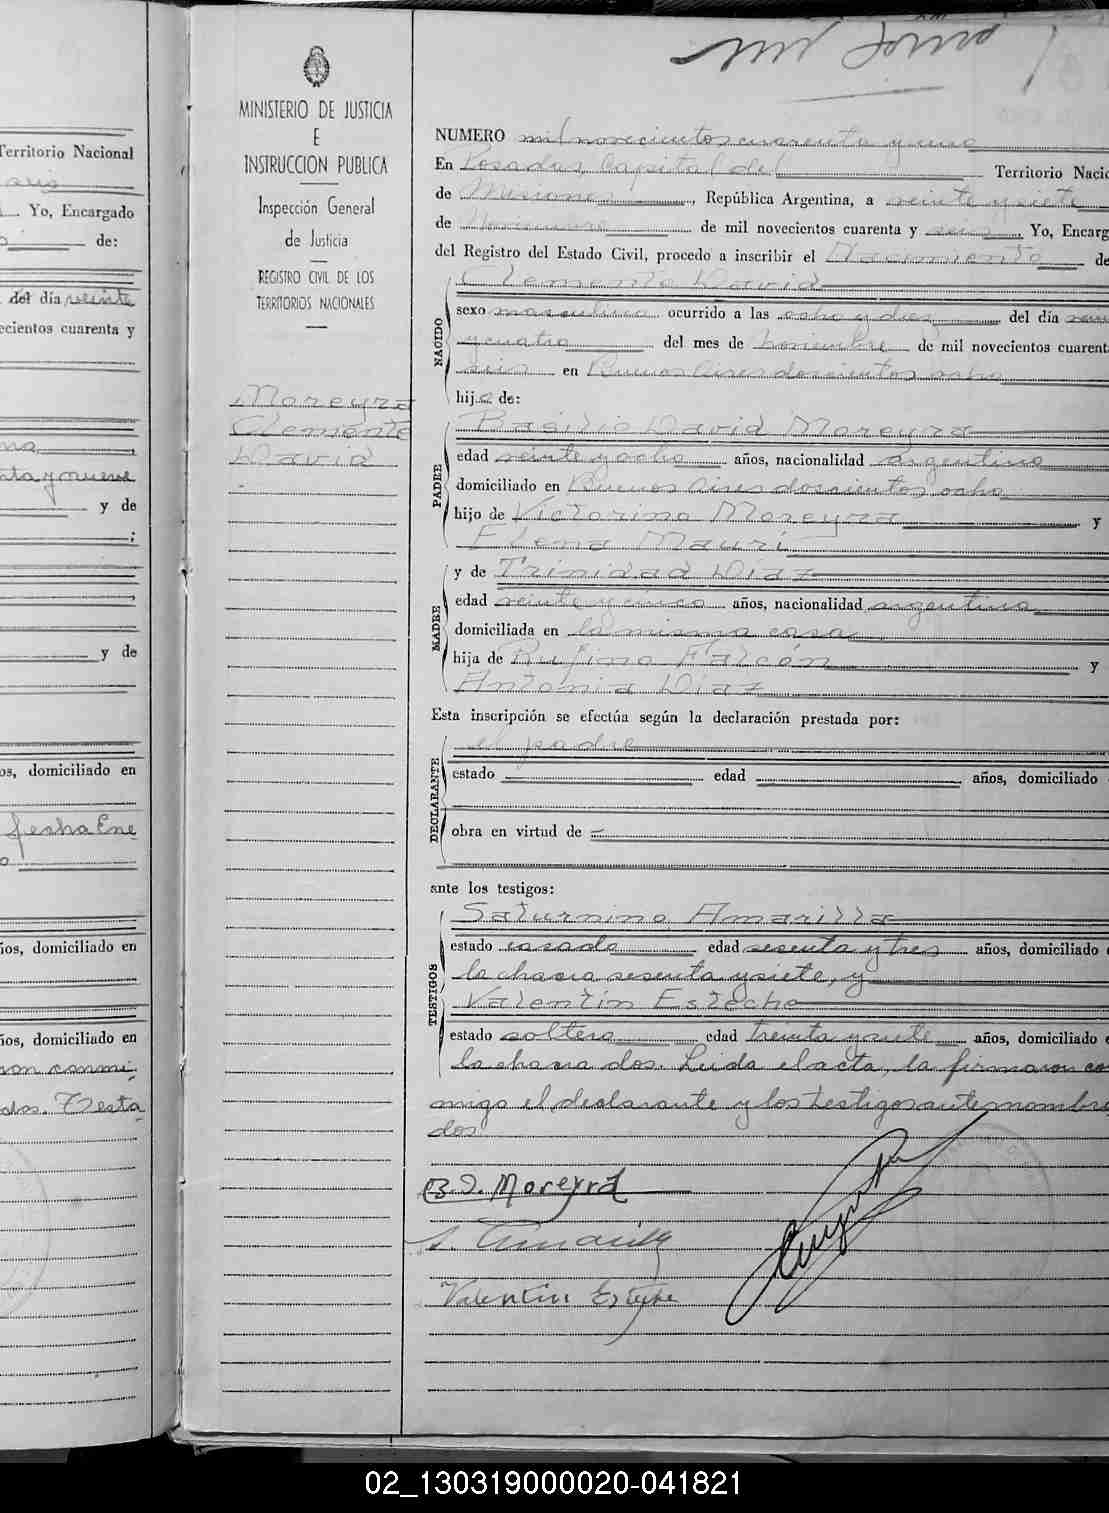 Territorio Nacional
Yo, Encargado
de:
del día veinte
ecientos cuarenta y
nta y nueve
y de
;
y de
os, domiciliado en
fecha Ene
ios, domiciliado en
ios, domiciliado en
ron conmi
dos. Testa
MINISTERIO DE JUSTICIA
E
INSTRUCCION PUBLICA
Inspección General
de Justicia
REGISTRO CIVIL DE LOS
TERRITORIOS NACIONALES
Moreyra
Clemente
David
NUMERO mil novecientos cuarenta y uno
En Posadas, Capital del Territorio Nacio
de Misiones, República Argentina, a veinte y siete
de Noviembre de mil novecientos cuarenta y seis, Yo, Encarg
del Registro del Estado Civil, procedo a inscribir el Nacimiento de
NACIDO
Clemente David
sexo masculino ocurrido a las ocho y diez del día vein
y cuatro del mes de Noviembre de mil novecientos cuarent
seis en Buenos Aires doscientos ocho
hijo de:
PADRE
Basilio David Moreyra
edad veinte y ocho años, nacionalidad argentino
domiciliado en Buenos Aires doscientos ocho
hijo de Victorino Moreyra y
Elena Mauri
MADRE
y de Trinidad Diaz
edad veinte y cinco años, nacionalidad argentina
domiciliada en la misma casa
hija de Rufino Falcón y
Antonia Diaz
Esta inscripción se efectúa según la declaración prestada por:
DECLARANTE
el padre
estado edad años, domiciliado
obra en virtud de
ante los testigos:
TESTIGOS
Saturnino Amarilla
estado casado edad sesenta y tres años, domiciliado e
la chacra sesenta y siete, y
Valentín Esteche
estado soltero edad treinta y siete años, domiciliado e
la chacra dos. Leida el acta, la firmaron co
migo el declarante y los testigos antes nombra
dos
B. D. Moreyra
S. Amarilla
Valentin Esteche
02_130319000020-041821